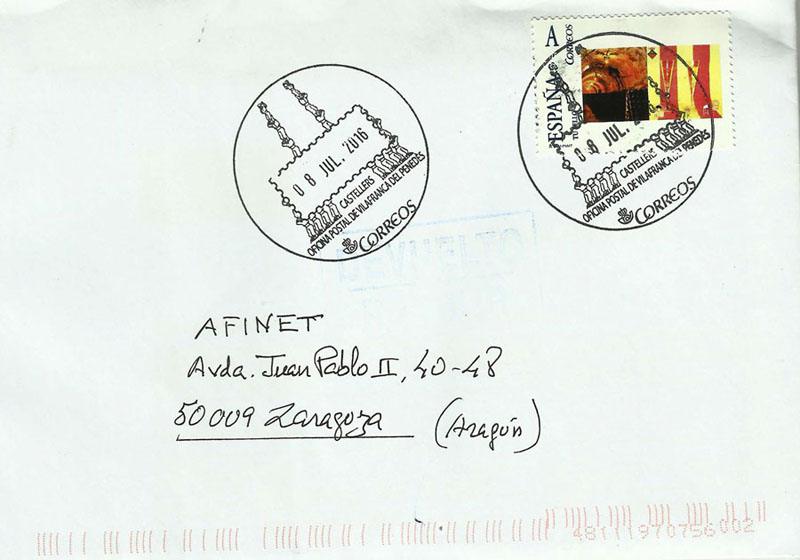 A
CORREOS
ESPAÑA
08 JUL. 2016
CASTELLERS
OFICINA POSTAL DE VILAFRANCA DEL PENEDÈS
CORREOS
08 JUL.
CASTELLERS
OFICINA POSTAL DE VILAFRANCA DEL PENEDÈS
CORREOS
AFINET
Avda. Juan Pablo II, 40-48
50009 Zaragoza (Aragón)
48111970756002